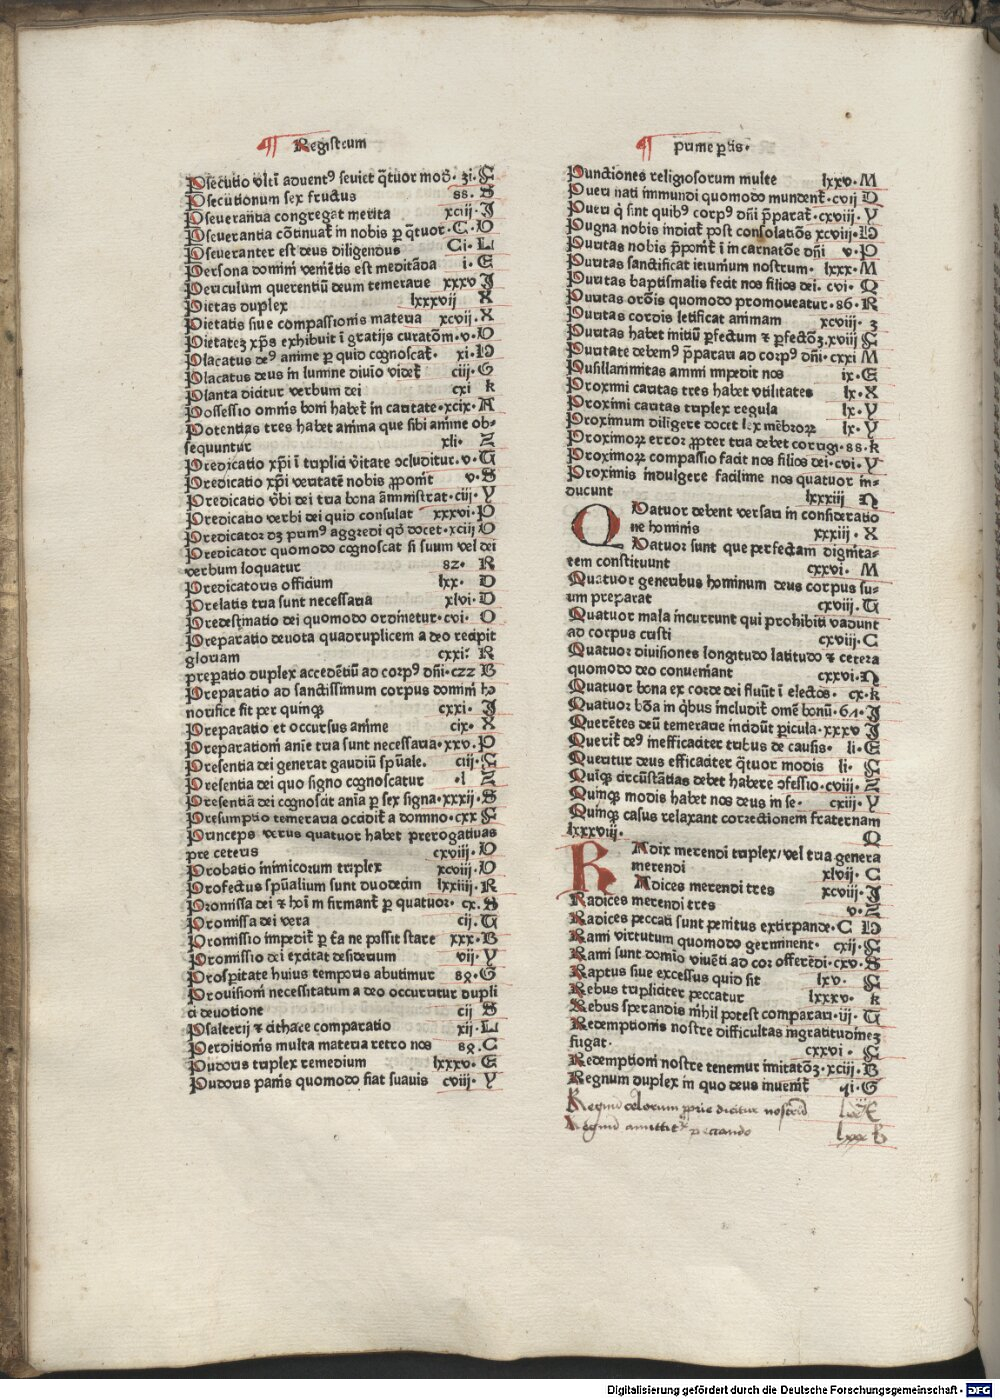 ¶ Registrum
Ꝑsecutio vlti aduentꝰ seuiet q̄tuor mod. 31. F
Ꝑsecutionum sex fructus 88. S
Ꝑseuerantia congregat merita xciij. J
Ꝑseuerantia cōtinuat in nobis ꝑ q̄tuor. C. O
Ꝑseueranter est deus diligendus Ci. L
Persona domini veniētis est meditāda i. E
Periculum querentiū deum temerarie xxxv J
Pietas duplex lxxxvij X
Pietatis siue compassionis materia xcvij. X
Pietateꝫ xp̄s exhibuit ī gratijs curatōm. v. O
Placatus deꝰ anime ꝑ quid cognoscat. xi. H
Placatus deus in lumine diuīo videt ciij. G
Planta dicitur verbum dei cxi k
Possessio omnis boni habet in caritate. xcix. A
Potentias tres habet anima que sibi anime ob-
sequuntur xli. Z
Predicatio xp̄i ī triplici v̄itate ↄcluditur. v. T
Predicatio xp̄i veritatē nobis ꝓponit v. S
Predicatio v̄bi dei tria bona āministrat. ciij. Y
Predicatio verbi dei quid consulat xxxvi. P
Predicator dꝫ primꝰ aggredi qḋ docet. xciij O
Predicator quomodo cognoscat si suum vel dei
verbum loquatur 82. R
Predicatoris officium lxx. D
Prelatis tria sunt necessaria xlvi. D
Predestinatio dei quomodo ordinetur. cvi. O
Preparatio deuota quadruplicem a deo recipit
gloriam cxxi. R
preꝑatio duplex accedētiū ad corpꝰ dn̄i. 122 B
Preparatio ad sanctissimum corpus domini ho
norifice fit per quinqꝫ cxxi. J
Preparatio et occursus anime cix. X
Preparationi anie tria sunt necessaria. xxv. P
Presentia dei generat gaudiū sp̄uale. ciij. F
Presentia dei quo signo cognoscatur .l Z
Presentiā dei cognoscit ania ꝑ sex signa. xxxij. S
Presumptio temeraria occidit a domino. cxx F
Princeps verus quatuor habet prerogatiuas
pre ceteris cxviij. O
Probatio inimicorum triplex xcviij. O
Profectus sp̄ualium sunt duodecim lxxiiij. R
Promissa dei ⁊ hoīm firmant ꝑ quatuor. cx. S
Promissa dei vera cij. T
Promissio impedit ꝑ t̄ra ne possit stare xxx. B
Promissio dei excitat desiderium vij. Y
Prosperitate huius temporis abutimur 89. G
Prouisioni necessitatum a deo occurritur dupli
ci deuotione cij S
Psalterij ⁊ cithare comparatio xij. L
Perditionis multa materia retro nos 89. C
Pudoris triplex remedium lxxxv. E
Pudoris panis quomodo fiat suauis cviij. Y
¶ prime ꝑtis.
Punctiones religiosorum multe lxxv. M
Pueri nati immundi quomodo mundent. cvij D
Pueri q̄ sint quibꝰ corpꝰ dn̄i p̄parat. cxviij. Y
Pugna nobis indicat post consolatiōs xcviij. H
Puritas nobis p̄ponit ī incarnatōe dn̄i v. P
Puritas sanctificat ieiunium nostrum. lxxx. M
Puritas baptismalis fecit nos filios dei. cvi. Q
Puritas orōis quomodo promoueatur. 86. R
Puritas cordis letificat animam xcviij. 3
Puritas habet initiū ꝑfectum ⁊ ꝑfectōꝫ. xviij F
Puritate debemꝰ p̄parari ad corpꝰ dn̄i. cxxi M
Pusillanimitas animi impedit nos ix. E
Proximi caritas tres habet vtilitates lx. X
Proximi caritas triplex regula lx. Y
Proximum diligere docet lex mēbroꝝ lx. Y
Proximoꝝ error ꝓpter tria debet corrigi. 88. k
Proximoꝝ compassio facit nos filios dei. cvi. Y
Proximis indulgere facilime nos quatuor in-
ducunt lxxxiij N
QVatuor debent versari in consideratio
ne hominis xxxiij. X
Quatuor sunt que perfectam dignita-
tem constituunt cxxvi. M
Quatuor generibus hominum deus corpus su-
um preparat cxviij. T
Quatuor mala incurrunt qui prohibiti vadunt
ad corpus cristi cxviij. C
Quatuor diuisiones longitudo latitudo ⁊ cetera
quomodo deo conueniant cxxvi. N
Quatuor bona ex corde dei fluūt ī electos. cx. k
Quatuor bōa in q̄bus includit omē bonū. 61. J
Querētes deū temerarie incidūt ꝑicula. xxxv J
Querit deꝰ inefficaciter tribus de causis. li. E
Queritur deus efficaciter q̄tuor modis li. F
Quīqꝫ circūstātias debet habere ↄfessio. cviij. Z
Quinqꝫ modis habet nos deus in se. cxiij. Y
Quinqꝫ casus relaxant correctionem fraternam
lxxxviij. Q
RAdix merendi triplex/vel tria genera
merendi xlvij. C
Radices merendi tres xcviij. J
Radices merendi tres v. Z
Radices peccati sunt penitus extirpande. C H
Rami virtutum quomodo germinent. cxij. F
Rami sunt domīo viuēti ad cor offerēdi. cxv. S
Raptus siue excessus quid sit lxv. F
Rebus tripliciter peccatur lxxxv. k
Rebus sperandis nihil potest comparari. iij. T
Redemptionis nostre difficultas ingratitudinez
fugat. cxxvi. F
Redemptioni nostre tenemur imitatōꝫ. xciij. B
Regnum duplex in quo deus inuenit xi. G
Regnū celorum ꝓprie dicitur nostrū lxx E
Regnū amittit peccando lxxx k
Digitalisierung gefördert durch die Deutsche Forschungsgemeinschaft - DFG